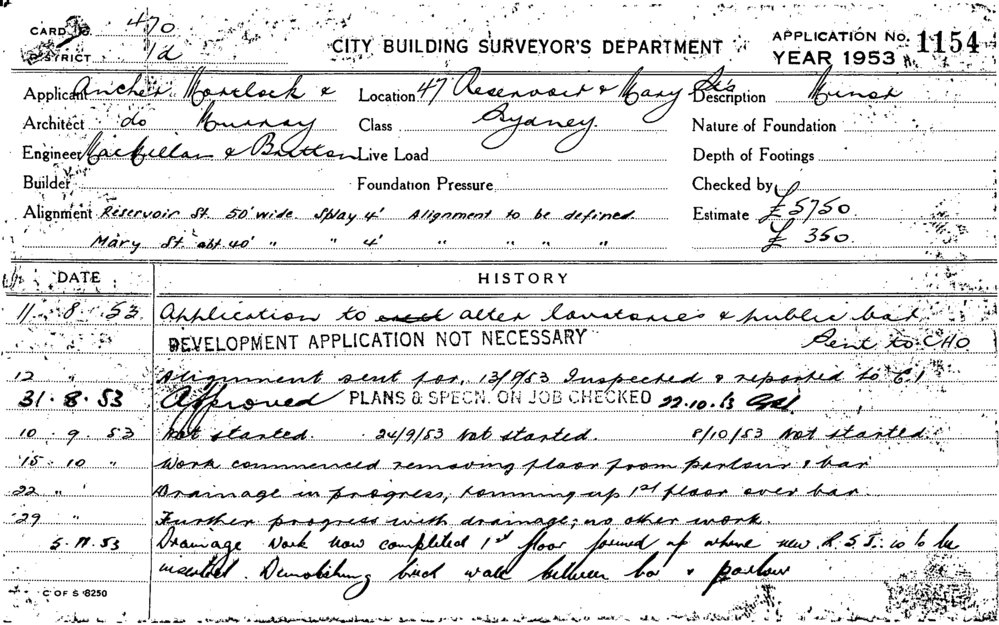 CARD 470 CITY BUILDING SURVEYOR'S DEPARTMENT APPLICATION No. 1154
DISTRICT 1d YEAR 1953
Applicant Ancher Mortlock & Location 47 Reservoir & Mary Sts Description Minor
Architect do Murray Class Sydney Nature of Foundation
Engineer MacMillan & Britten Live Load Depth of Footings
Builder Foundation Pressure Checked by
Alignment Reservoir St. 50' wide. Splay 4' Alignment to be defined. Estimate £5750.
Mary St. abt 40' " " 4' " " " " £ 350.
DATE HISTORY
11 . 8 . 53 Application to erect alter lavatories & public bar
DEVELOPMENT APPLICATION NOT NECESSARY Sent to CHO
12 " Alignment sent for, 13/8/53 Inspected & reported to C.I
31 . 8 . 53 Approved PLANS & SPECN. ON JOB CHECKED 22.10.53
10 . 9 . 53 Not started. 24/9/53 Not started. 8/10/53 Not started.
15 . 10 " Work commenced removing floor from parlour & bar
22 " Drainage in progress, tomming up 1st floor over bar.
29 " Further progress with drainage; no other work.
5.11.53 Drainage work now completed 1st floor tommed up where new R.S.Js. is to be
inserted. Demolishing brick wall between bar & parlour
C OF S 8250